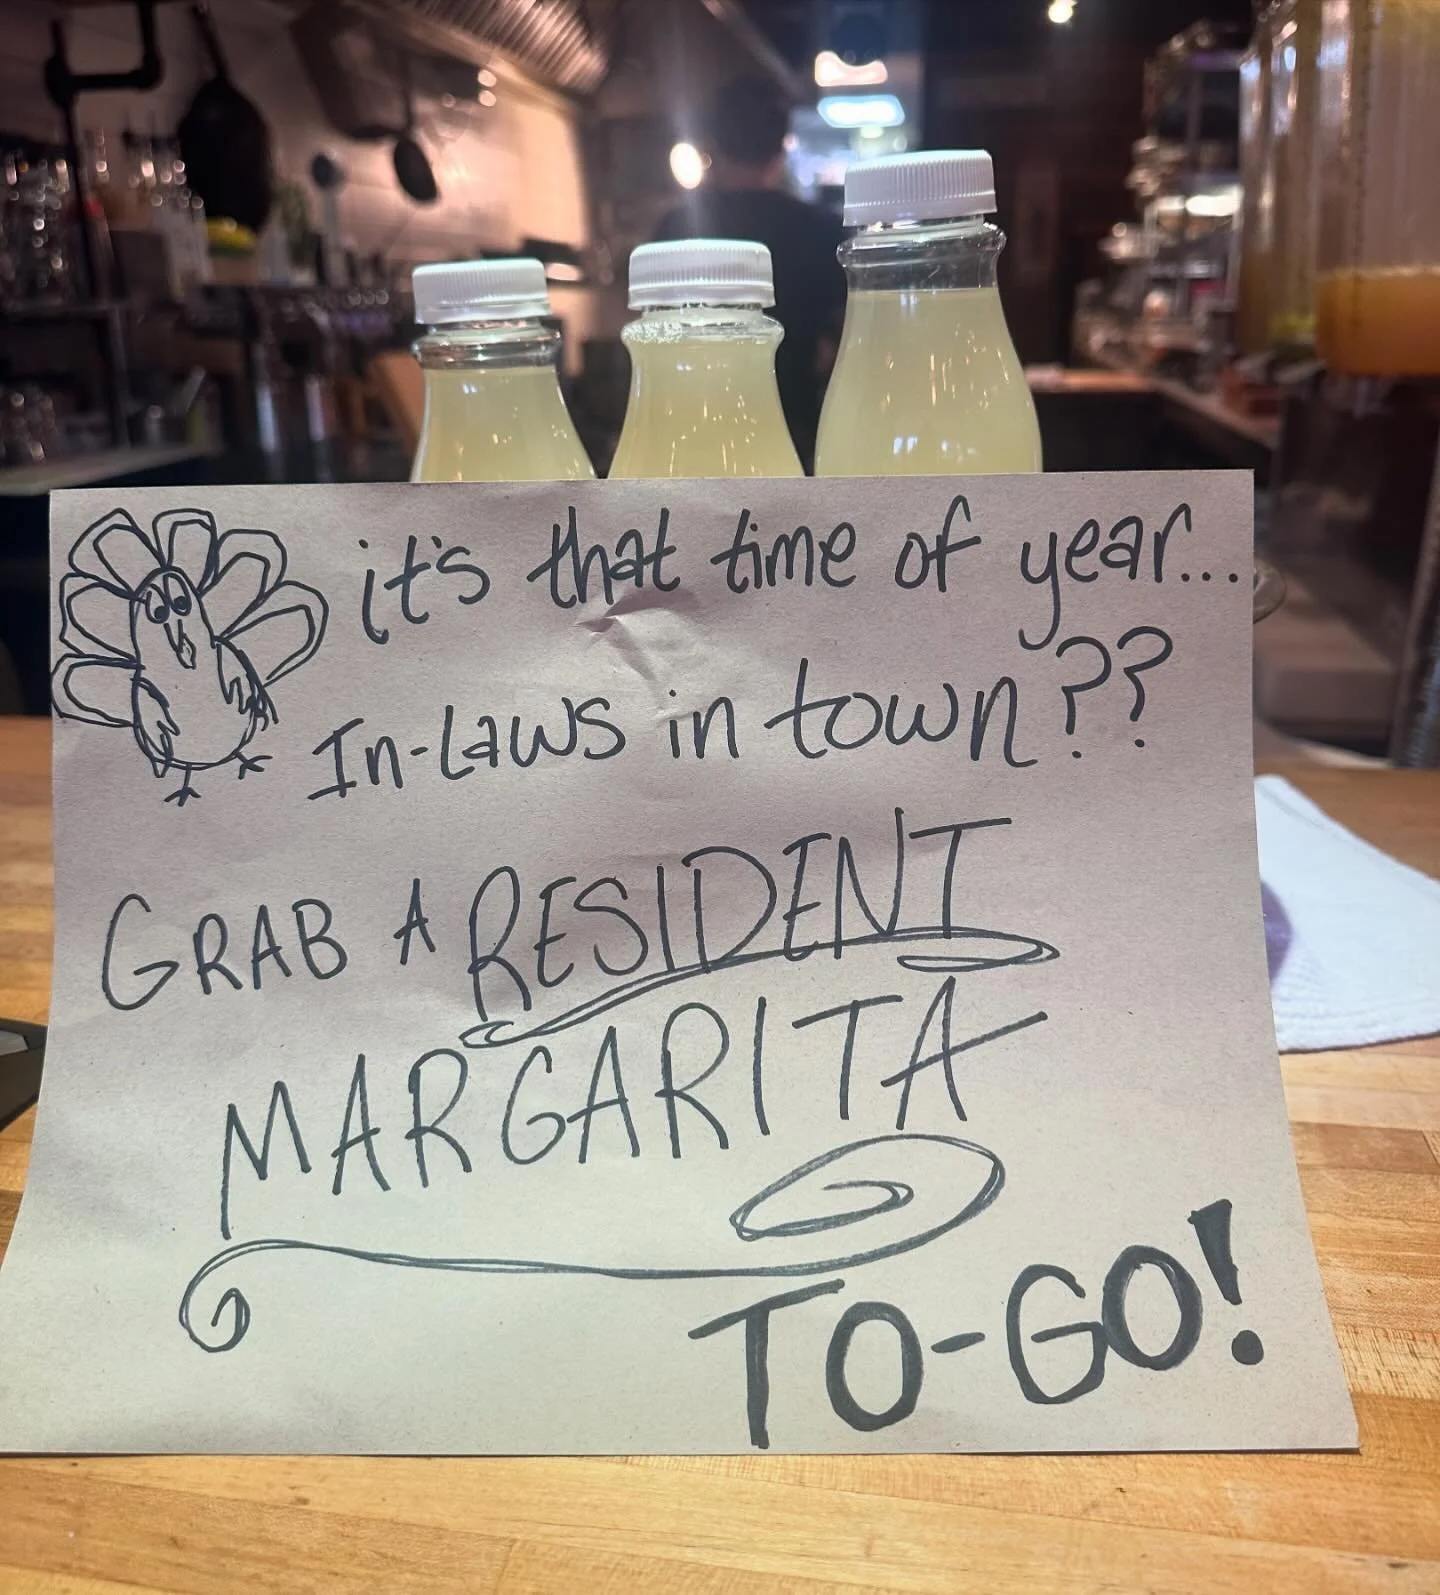 it's that time of year...
In-Laws in town??
GRAB A RESIDENT
MARGARITA
TO-GO!